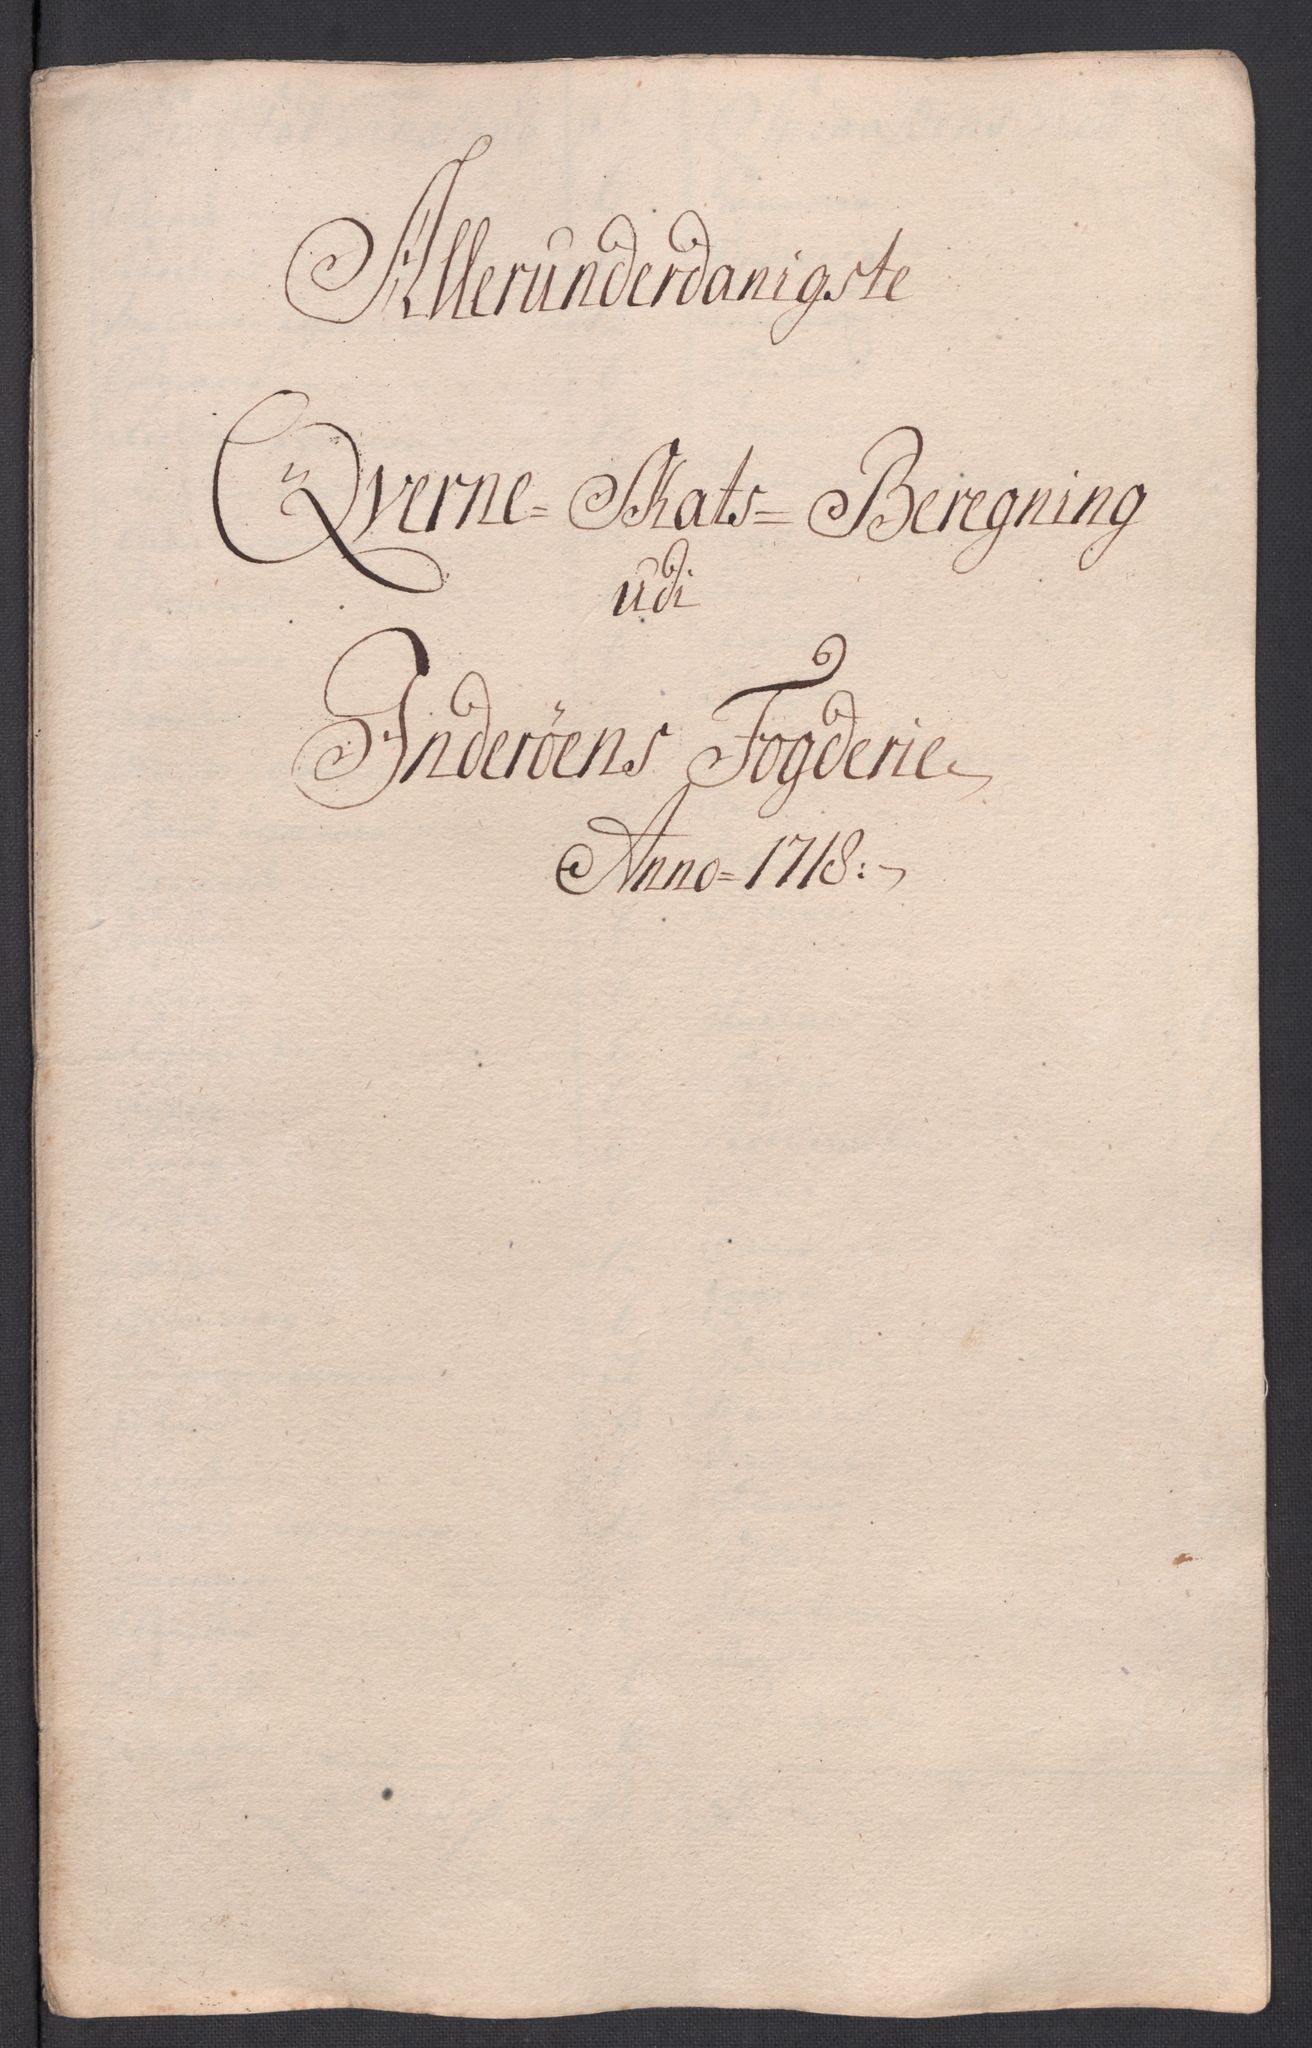 Allerunderdanigste
Qverne= Skats= Beregning
udi
Inderöens Fogderie
Anno= 1718: